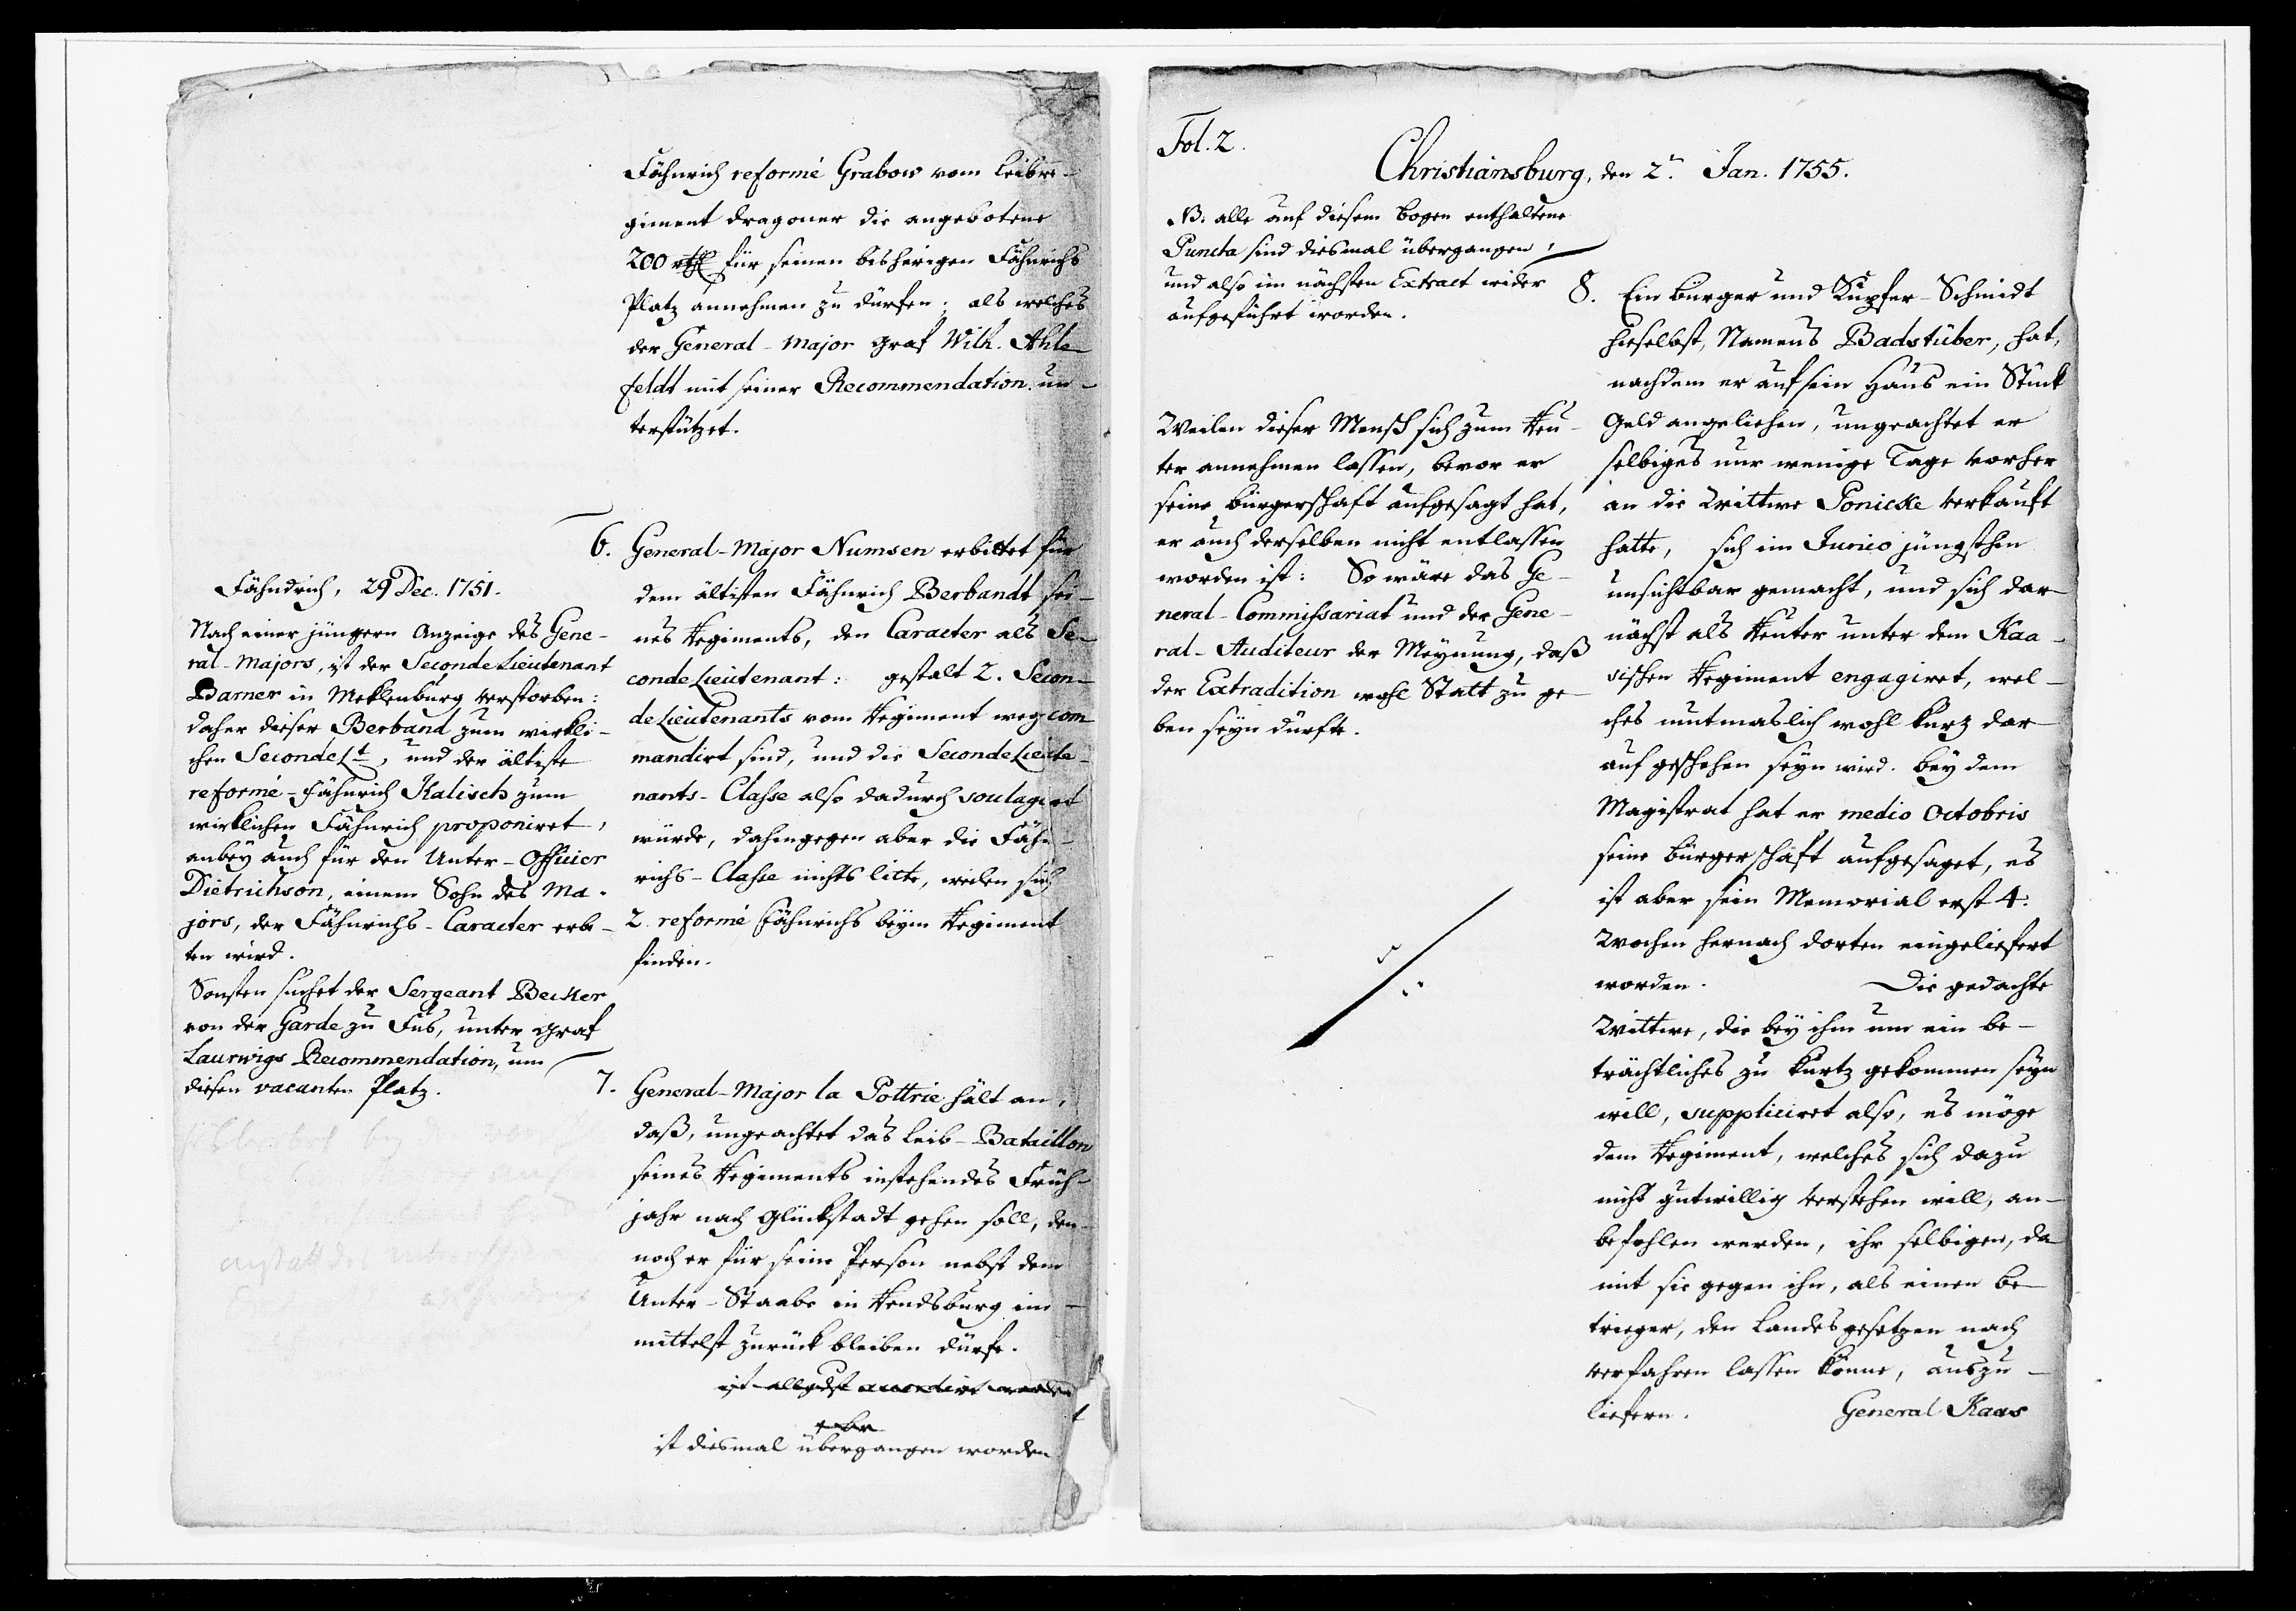 Fähnrich reformé Grabow vom Leibre-
giment Dragoner die angebotene
200 rthl für seinen bisherigen Fähnrichs
Platz annehmen zu dürfen; als welches
der General-Major Graf Wilh. Ahle-
feldt mit seiner Recommendation un-
terstützet.
6. General-Major Numsen erbittet für
dem ältisten Fähnrich Berbandt sei-
nes Regiments, den Caracter als Se-
conde Lieutenant: gestalt 2. Secon-
de Lieutenants vom Regiment weg com
mandirt sind, und die Seconde Lieute-
nants-Classe also dadurch soulagiret
würde, dahingegen aber die Fähn-
richs-Classe nichts litte, weilen sich
2. reformé Fähnrichs beym Regiment
finden.
Fähndrich, 29 Dec. 1751.
Nach einer jüngern Anzeige des Gene-
ral-Majors, ist der Seconde Lieutenant
Barner in Meklenburg verstorben:
daher dieser Berband zum wirkli-
chen Seconde Lt, und der ältiste
reformé-Fähnrich Kalisch zum
wirklichen Fähnrich proponiret,
anbey auch für den Unter-Officier
Dietrichson, einem Sohn des Ma-
jors, der Fähnrichs-Caracter erbe-
ten wird.
Sonsten suchet der Sergeant Becker
von der Garde zu Fus, unter Graf
Laurwigs Recommendation, um
diesen vacanten Platz.
7. General-Major la Pottrie hält an,
daß, ungeachtet das Leib-Bataillon
seines Regiments instehendes Früh-
jahr nach Glückstadt gehen soll, den-
noch er für seine Person nebst dem
Unter-Staabe in Rendsburg im-
mittelst zurück bleiben dürfe.
ist allgdst accordirt worden
ist diesmal übergangen worden
Fol. 2.
Christiansburg, den 2n Jan. 1755.
NB. alle auf diesem Bogen enthaltene
Puncta sind diesmal übergangen,
und also im nächsten Extract wider
aufgeführt worden.
8. Ein Bürger und Kupfer-Schmidt
hieselbst, Namens Badstüber, hat,
nachdem er auf sein Haus ein Stück
Geld angeliehen, ungeachtet er
selbiges nur wenige Tage vorher
an die Wittwe Ponicke verkauft
hatte, sich im Junio jüngsthin
unsichtbar gemacht, und sich dar-
nächst als Reuter unter dem Kaa-
sischen Regiment engagiret, wel-
ches mutmaslich wohl kurz dar-
auf geschehen seyn wird. Bey dem
Magistrat hat er medio Octobris
seine Bürgerschaft aufgesaget, es
ist aber sein Memorial erst 4.
Wochen hernach dorten eingeliefert
worden. Die gedachte
Wittwe, die bey ihm um ein be-
trächtliches zu kurtz gekommen seyn
will, suppliciret also, es möge
dem Regiment, welches sich dazu
nicht gutwillig verstehen will, an-
befohlen werden, ihr selbigen, da
mit sie gegen ihn, als einen Be-
trieger, den Landesgesetzen nach
verfahren lassen könne, auszu-
liefern. General Kaas
Weilen dieser Mensch sich zum Reu-
ter annehmen lassen, bevor er
seine Bürgerschaft aufgesagt hat,
er auch derselben nicht entlassen
worden ist: So wäre das Ge-
neral-Commissariat und der Gene-
ral-Auditeur der Meynung, daß
der Extradition wohl Statt zu ge-
ben seyn dürfte.